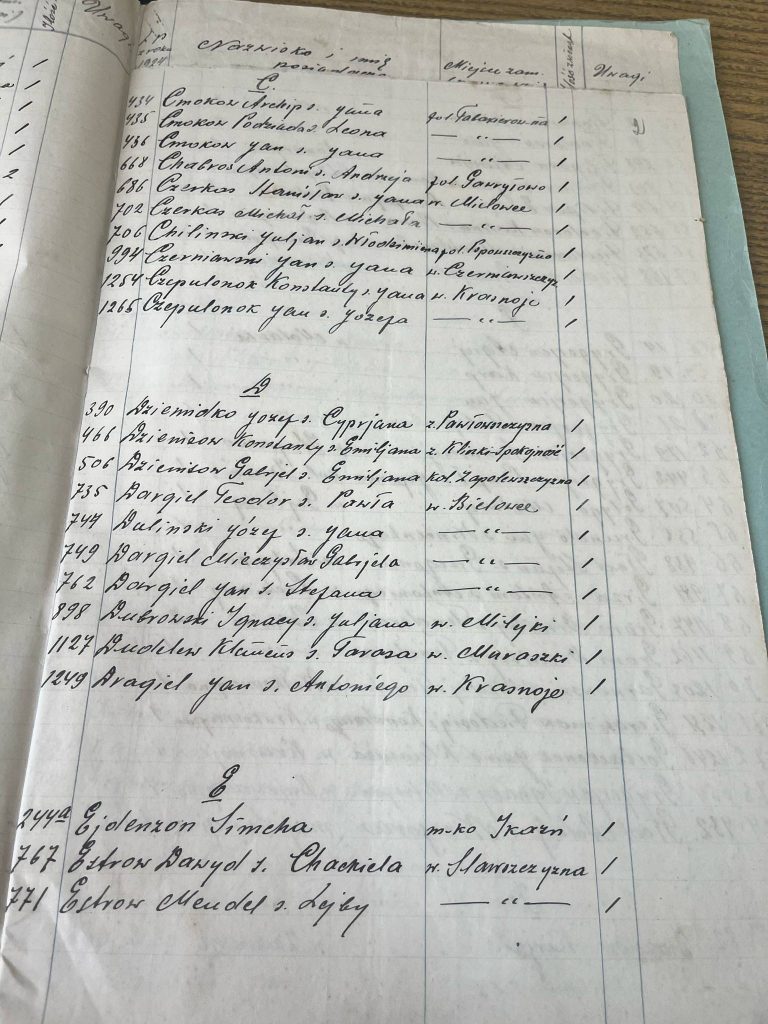 Uwagi
1924 Nazwisko i imię posiadacza Miejsce zam. Ilość zwierząt Uwagi
C.
434 Cmokow Archip s. Jana fol. 1
435 Cmokow s. Leona — „ — 1
436 Cmokow Jan s. Jana — „ — 1
668 Chabros Antoni s. Andrzeja fol. Gawryłowo 1
686 Czerkas Stanisław s. Jana w. Mielowce 1
702 Czerkas Michał s. Michała — „ — 1
706 Chilinski Juljan s. Włodzimierza fol. 1
994 Czerniawski Jan s. Jana w. 1
1254 Czepulonok Konstanty s. Jana w. Krasnoje 1
1265 Czepulonok Jan s. Józefa — „ — 1
D
390 Dziemidko Józef s. Cyprjana z. Pawłowszczyzna 1
466 Konstanty s. Emiljana z. Klinki-Spokojność 1
506 Gabrjel s. Emiljana kol. Zapolewszczyzna 1
735 Dargiel Teodor s. Pawła w. Bielowce 1
744 Dulinski Józef s. Jana — „ — 1
749 Dargiel Mieczysław Gabrjela — „ — 1
762 Dargiel Jan s. Stefana — „ — 1
898 Dubrowski Ignacy s. Juljana w. Milejki 1
1127 Dudelew Klimens s. Tarasa w. Muraszki 1
1249 Dragiel Jan s. Antoniego w. Krasnoje 1
E
244a Ejdenzon Simcha m-ko Ikaźń 1
767 Estrow Dawyd s. Chackiela w. Sławszczyzna 1
771 Estrow Mendel s. Lejby — „ — 1